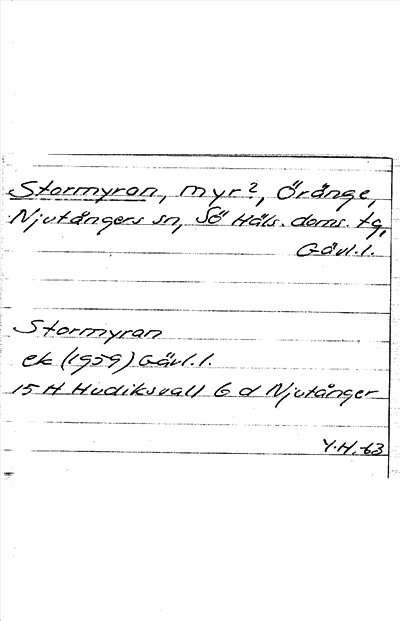 Stormyran, myr?, Öränge,
Njutångers sn, Sö Häls. doms. tg,
Gävl.l.
Stormyran
ek (1959) Gävl.l.
15 H Hudiksvall 6 d Njutånger
Y.H. 63